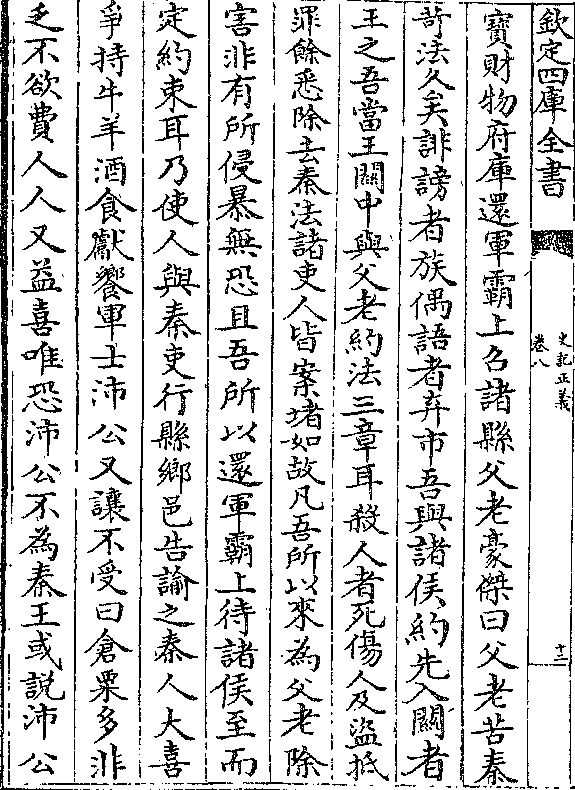 欽定四庫全書
史記正義
卷八
十三
寶財物府庫還軍霸上召諸縣父老豪傑曰父老苦秦
苛法久矣誹謗者族偶語者弃市吾與諸侯約先入關者
王之吾當王關中與父老約法三章耳殺人者死傷人及盜抵
罪餘悉除去秦法諸吏人皆案堵如故凡吾所以來為父老除
害非有所侵暴無恐且吾所以還軍霸上待諸侯至而
定約束耳乃使人與秦吏行縣鄉邑告諭之秦人大喜
爭持牛羊酒食獻饗軍士沛公又讓不受曰倉粟多非
乏不欲費人人又益喜唯恐沛公不為秦王或說沛公